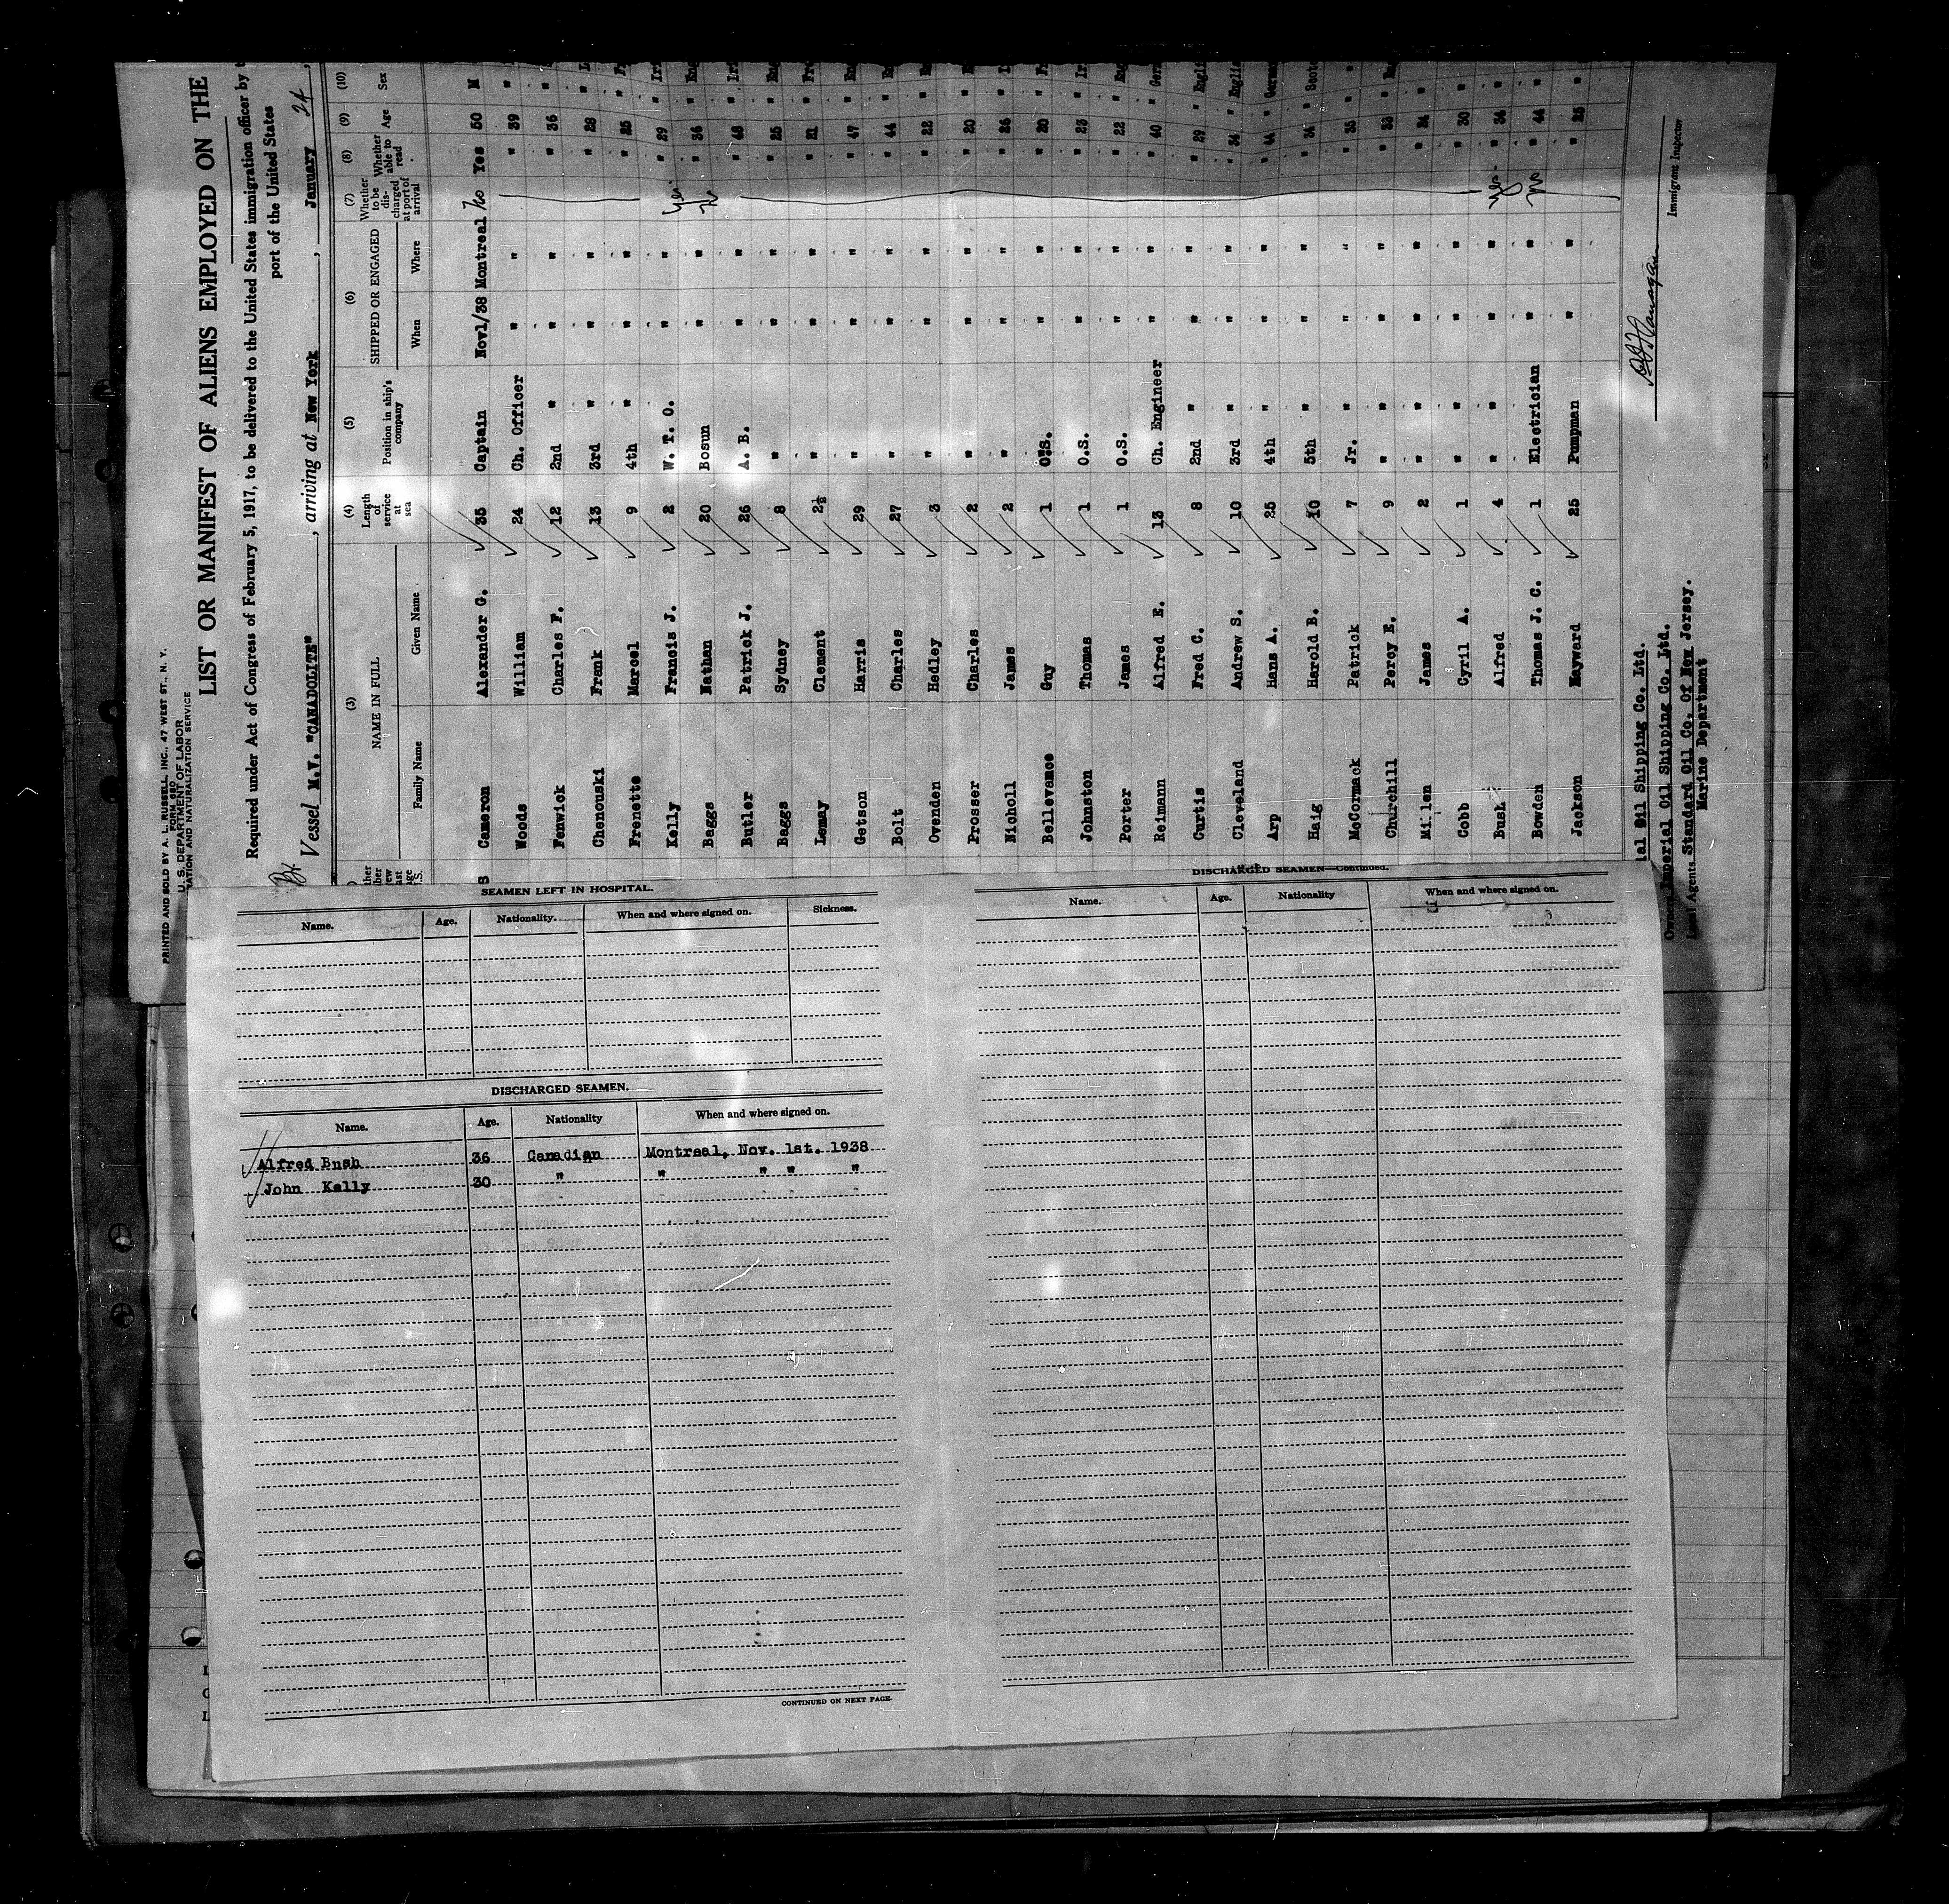 PRINTED AND SOLD BY A. L. RUSSELL, INC., 47 WEST ST., N. Y.
FORM 680
U. S. DEPARTMENT OF LABOR
ATION AND NATURALIZATION SERVICE
LIST OR MANIFEST OF ALIENS EMPLOYED ON THE
Required under Act of Congress of February 5, 1917, to be delivered to the United States immigration officer by t
port of the United States
Br. Vessel M.V. "CANADOLITE", arriving at New York, January 24,
(3) (4) (5) (6) (7) (8) (9) (10)
NAME IN FULL Length of service at sea Position in ship's company SHIPPED OR ENGAGED Whether to be discharged at port of arrival Whether able to read Age Sex
Family Name Given Name When Where
Cameron Alexander G. 35 Captain Nov1/38 Montreal No Yes 50 M
Woods William 24 Ch. Officer " " " 39 "
Fenwick Charles F. 12 2nd " " " " 36 "
Chenouski Frank 13 3rd " " " " 28 "
Frenette Marcel 9 4th " " " " 25 "
Kelly Francis J. 2 W. T. O. " " Yes " 29 " Iri
Baggs Nathan 20 Bosun " " No " 36 " Eng
Butler Patrick J. 26 A. B. " " " 48 " Iri
Baggs Sydney 8 " " " " 25 " Eng
Lemay Clement 2½ " " " " 21 " Fre
Getson Harris 29 " " " " 47 " En
Bolt Charles 27 " " " " 44 "
Ovenden Hedley 3 " " " " 22 "
Prosser Charles 2 " " " " 20 "
Nicholl James 2 " " " " 26 "
Bellevance Guy 1 O.S. " " " 20 "
Johnston Thomas 1 O.S. " " " 23 " Ir
Porter James 1 O.S. " " " 22 " Eng
Reimann Alfred E. 13 Ch. Engineer " " " 40 " Ger
Curtis Fred C. 8 2nd " " " " 29 " Engli
Cleveland Andrew S. 10 3rd " " " " 34 " Engli
Arp Hans A. 25 4th " " " " 44 " German
Haig Harold B. 10 5th " " " " 34 " Scotc
McCormack Patrick 7 Jr. " " " " 35 "
Churchill Percy E. 9 " " " " 33 "
Millen James 2 " " " " 24 "
Cobb Cyril A. 1 " " " " 30 "
Bush Alfred 4 " " " Yes " 34 "
Bowden Thomas J. C. 1 Electrician " " No " 44 "
Jackson Mayward 25 Pumpman " " " 25 "
Immigrant Inspector
ial Oil Shipping Co. Ltd.
Owners Imperial Oil Shipping Co. Ltd.
Local Agents Standard Oil Co. Of New Jersey.
Marine Department
SEAMEN LEFT IN HOSPITAL.
Name. Age. Nationality. When and where signed on. Sickness.
DISCHARGED SEAMEN.
Name. Age. Nationality When and where signed on.
Alfred Bush 36 Canadian Montreal, Nov. 1st. 1938
John Kelly 30 " " " " "
CONTINUED ON NEXT PAGE.
DISCHARGED SEAMEN—Continued.
Name. Age. Nationality When and where signed on.